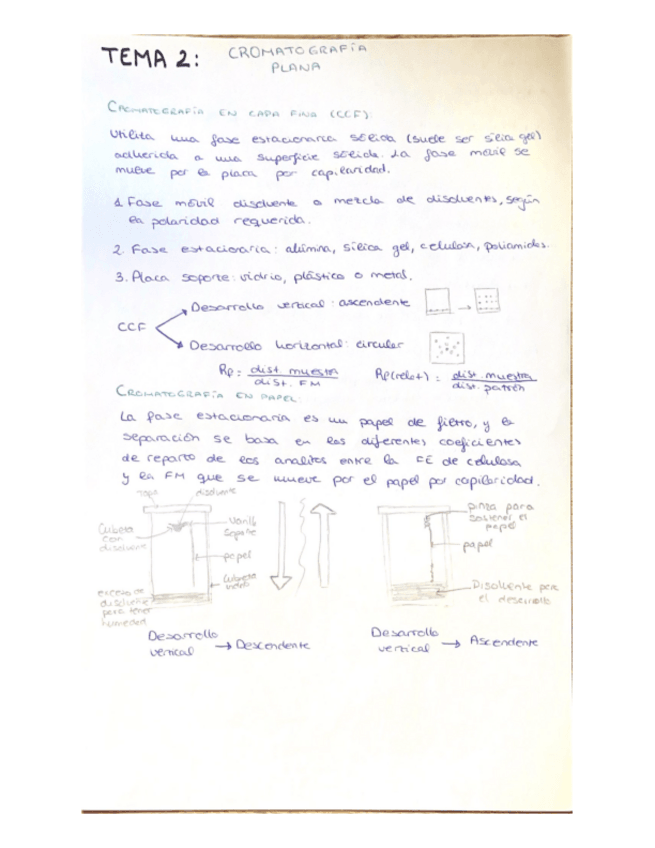 TEMA 2: CROMATOGRAFÍA
PLANA
CROMATOGRAFÍA EN CAPA FINA (CCF):
Utiliza una fase estacionaria sólida (suele ser sílica gel)
adherida a una superficie sólida. La fase móvil se
mueve por la placa por capilaridad.
1. Fase móvil disolvente o mezcla de disolventes, según
la polaridad requerida.
2. Fase estacionaria: alúmina, sílica gel, celulosa, poliamidas.
3. Placa soporte: vidrio, plástico o metal.
CCF
Desarrollo vertical: ascendente
Desarrollo horizontal: circular
RF = dist. muestra
dist. FM
RF(relat) = dist. muestra
dist. patrón
CROMATOGRAFÍA EN PAPEL:
La fase estacionaria es un papel de filtro, y la
separación se basa en los diferentes coeficientes
de reparto de los analitos entre la FE de celulosa
y la FM que se mueve por el papel por capilaridad.
Tapa
disolvente
Cubeta
con
disolvente
Varilla
soporte
papel
Cubeta
vidrio
exceso de
disolvente
para tener
humedad
pinza para
sostener el
papel
papel
Disolvente para
el desarrollo
Desarrollo
vertical → Descendente
Desarrollo
vertical → Ascendente